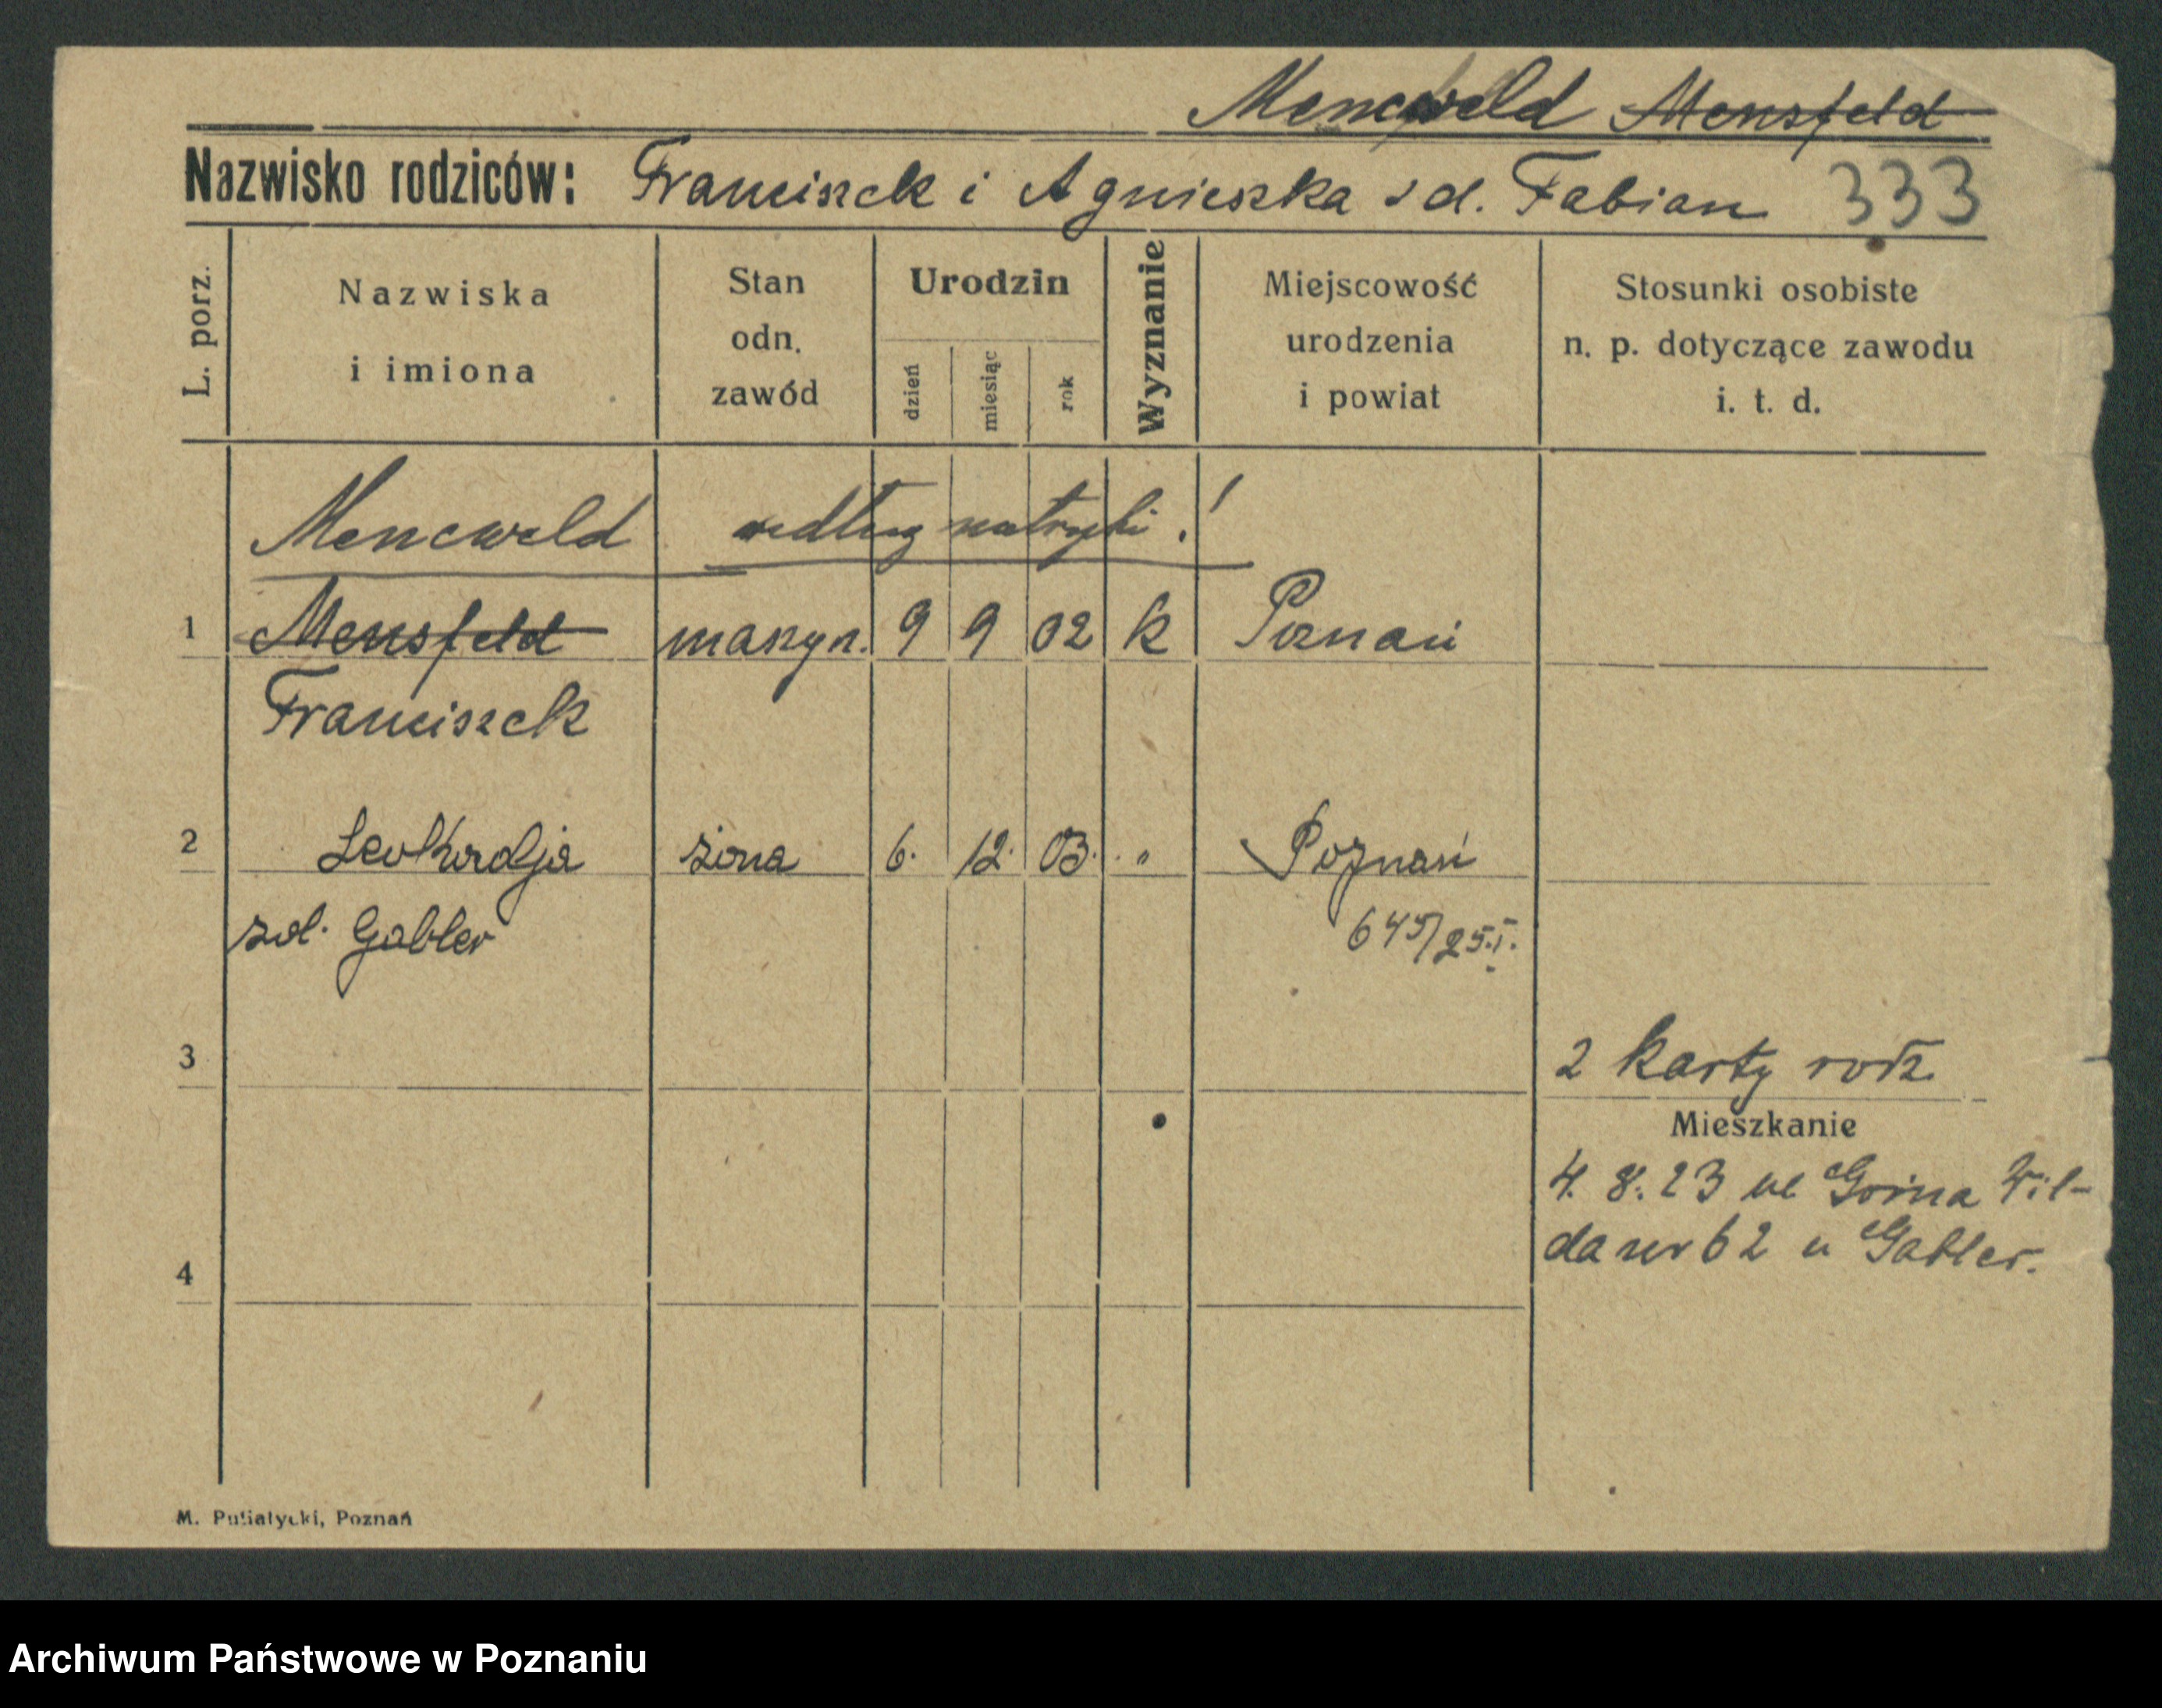 Mencweld Mensfeld
Nazwisko rodziców: Franciszek i Agnieszka zd. Fabian 333
L. porz.
Nazwiska
i imiona
Stan
odn.
zawód
Urodzin
dzień
miesiąc
rok
Wyznanie
Miejscowość
urodzenia
i powiat
Stosunki osobiste
n. p. dotyczące zawodu
i. t. d.
Mencweld według metryki!
1 Mensfeld maszyn. 9 9 02 k Poznań
Franciszek
2 Leokardja żona 6. 12. 03. " Poznań
zd. Gabler 645/25.I.
3 2 karty rodz.
Mieszkanie
4. 8. 23 ul Górna Wil-
da nr 62 u Gabler.
4
M. Putiatycki, Poznań
Archiwum Państwowe w Poznaniu